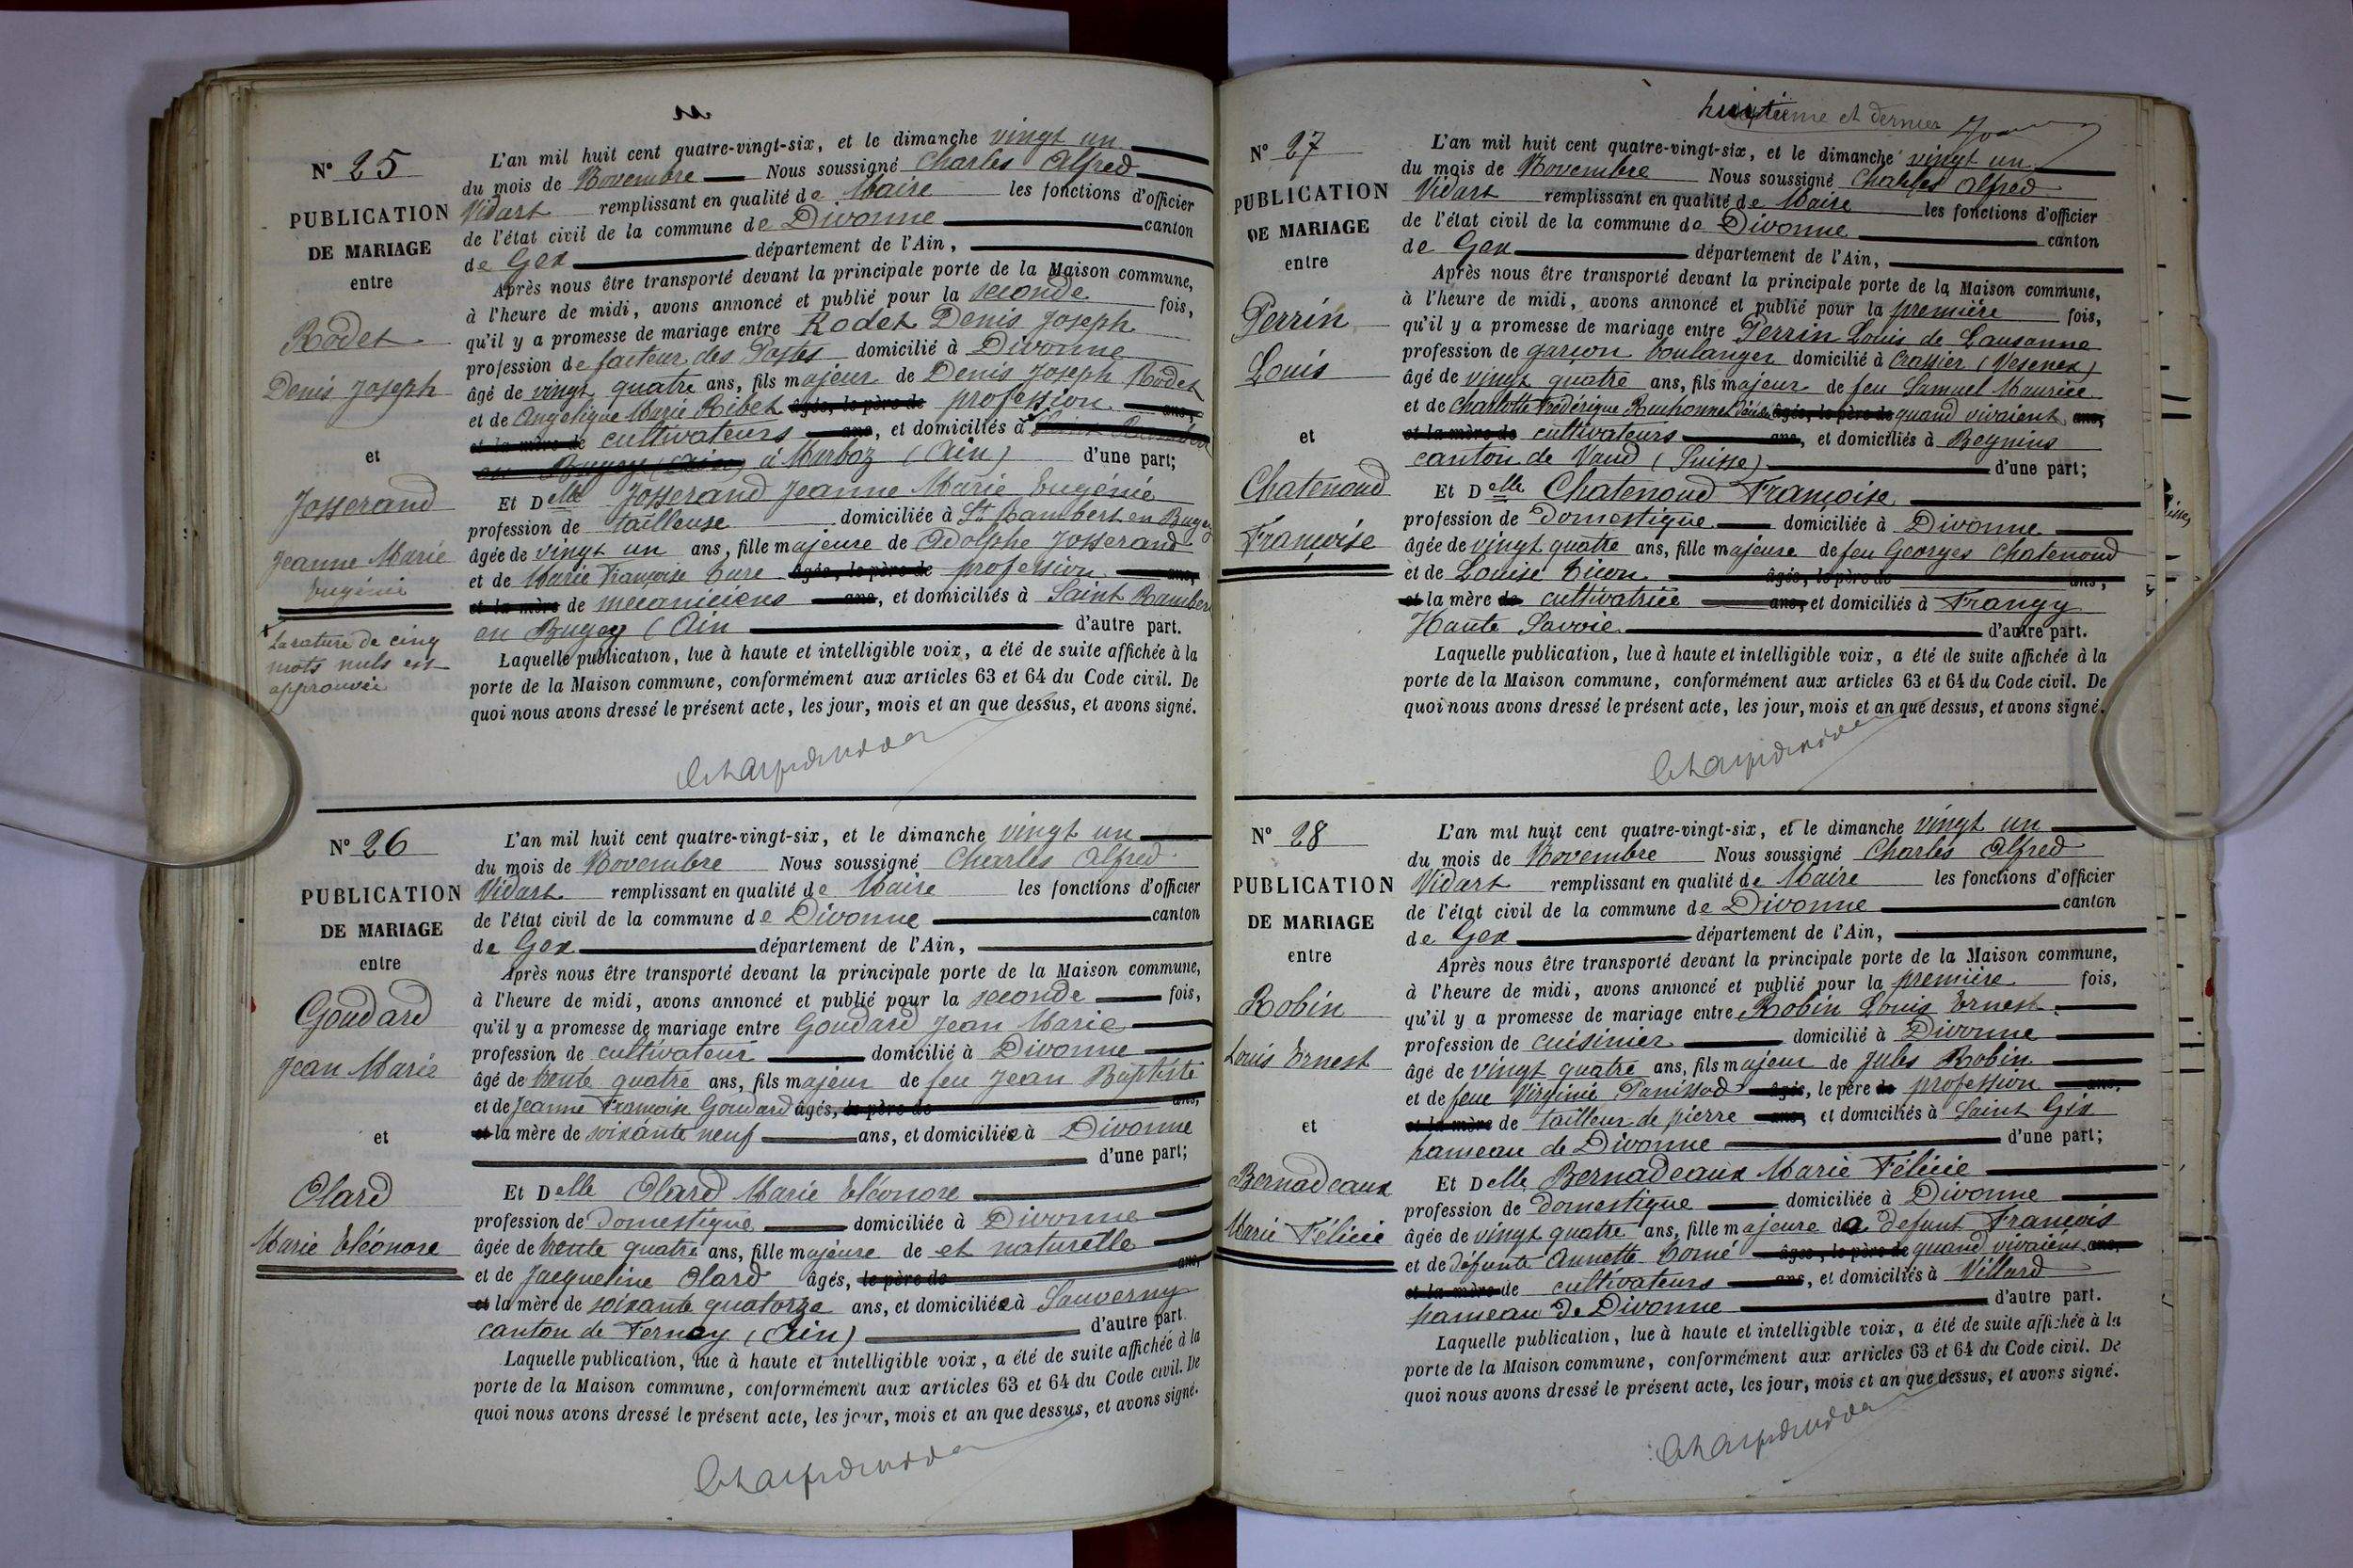 N° 25
PUBLICATION
DE MARIAGE
entre
Rodet
Denis Joseph
et
Josserand
Jeanne Marie
Eugénie
La rature de cinq
mots nuls est
approuvée
L'an mil huit cent quatre-vingt-six, et le dimanche vingt un
du mois de Novembre Nous soussigné Charles Alfred
Vidart remplissant en qualité de Maire les fonctions d'officier
de l'état civil de la commune de Divonne canton
de Gex département de l'Ain,
Après nous être transporté devant la principale porte de la Maison commune,
à l'heure de midi, avons annoncé et publié pour la seconde fois,
qu'il y a promesse de mariage entre Rodet Denis Joseph
profession de facteur des Postes domicilié à Divonne
âgé de vingt quatre ans, fils majeur de Denis Joseph Rodet
et de Angélique Marie Ribet âgés, le père de profession ans,
et la mère de cultivateurs ans, et domiciliés à Saint Rambert
en Bugey (Ain) à Marboz (Ain) d'une part;
Et Delle Josserand Jeanne Marie Eugénie
profession de tailleuse domiciliée à St Rambert en Bugey
âgée de vingt un ans, fille majeure de Adolphe Josserand
et de Marie Françoise Cure âgés, le père de profession ans,
et la mère de mecaniciens ans, et domiciliés à Saint Rambert
en Bugey (Ain d'autre part.
Laquelle publication, lue à haute et intelligible voix, a été de suite affichée à la
porte de la Maison commune, conformément aux articles 63 et 64 du Code civil. De
quoi nous avons dressé le présent acte, les jour, mois et an que dessus, et avons signé.
N° 26
PUBLICATION
DE MARIAGE
entre
Goudard
Jean Marie
et
Olard
Marie Eléonore
L'an mil huit cent quatre-vingt-six, et le dimanche vingt un
du mois de Novembre Nous soussigné Charles Alfred
Vidart remplissant en qualité de Maire les fonctions d'officier
de l'état civil de la commune de Divonne canton
de Gex département de l'Ain,
Après nous être transporté devant la principale porte de la Maison commune,
à l'heure de midi, avons annoncé et publié pour la seconde fois,
qu'il y a promesse de mariage entre Goudard Jean Marie
profession de cultivateur domicilié à Divonne
âgé de trente quatre ans, fils majeur de feu Jean Baptiste
et de Jeanne Françoise Goudard âgés, le père de ans,
et la mère de soixante neuf ans, et domiciliés à Divonne
d'une part;
Et Delle Olard Marie Eléonore
profession de Domestique domiciliée à Divonne
âgée de trente quatre ans, fille majeure de et naturelle
et de Jacqueline Olard âgés, le père de ans,
et la mère de soixante quatorze ans, et domiciliés à Sauverny
canton de Fernay (Ain) d'autre part.
Laquelle publication, lue à haute et intelligible voix, a été de suite affichée à la
porte de la Maison commune, conformément aux articles 63 et 64 du Code civil. De
quoi nous avons dressé le présent acte, les jour, mois et an que dessus, et avons signé.
huitième et dernier
N° 27
PUBLICATION
DE MARIAGE
entre
Perrin
Louis
et
Chatenoud
Françoise
L'an mil huit cent quatre-vingt-six, et le dimanche vingt un
du mois de Novembre Nous soussigné Charles Alfred
Vidart remplissant en qualité de Maire les fonctions d'officier
de l'état civil de la commune de Divonne canton
de Gex département de l'Ain,
Après nous être transporté devant la principale porte de la Maison commune,
à l'heure de midi, avons annoncé et publié pour la première fois,
qu'il y a promesse de mariage entre Perrin Louis de Lausanne
profession de garçon boulanger domicilié à Crassier (Vesenex)
âgé de vingt quatre ans, fils majeur de feu Samuel Maurice
et de Charlotte Frédérique âgés, le père de quand vivaient ans,
et la mère de cultivateurs ans, et domiciliés à Begnins
canton de Vaud (Suisse) d'une part;
Et Delle Chatenoud Françoise
profession de Domestique domiciliée à Divonne
âgée de vingt quatre ans, fille majeure de feu Georges Chatenoud
et de Louise âgés, le père de ans,
et la mère de cultivatrice ans, et domiciliés à Frangy
Haute Savoie d'autre part.
Laquelle publication, lue à haute et intelligible voix, a été de suite affichée à la
porte de la Maison commune, conformément aux articles 63 et 64 du Code civil. De
quoi nous avons dressé le présent acte, les jour, mois et an que dessus, et avons signé.
N° 28
PUBLICATION
DE MARIAGE
entre
Robin
Louis Ernest
et
Bernadeaux
Marie Félicie
L'an mil huit cent quatre-vingt-six, et le dimanche vingt un
du mois de Novembre Nous soussigné Charles Alfred
Vidart remplissant en qualité de Maire les fonctions d'officier
de l'état civil de la commune de Divonne canton
de Gex département de l'Ain,
Après nous être transporté devant la principale porte de la Maison commune,
à l'heure de midi, avons annoncé et publié pour la première fois,
qu'il y a promesse de mariage entre Robin Louis Ernest
profession de cuisinier domicilié à Divonne
âgé de vingt quatre ans, fils majeur de Jules Robin
et de feue Virginie Panissod âgés, le père de profession ans,
et la mère de tailleur de pierre ans, et domiciliés à Saint Gix
hameau de Divonne d'une part;
Et Delle Bernadeaux Marie Félicie
profession de Domestique domiciliée à Divonne
âgée de vingt quatre ans, fille majeure de defunt François
et de défunte Annette Comé âgés, le père de quand vivaient ans,
et la mère de cultivateurs ans, et domiciliés à Villard
hameau de Divonne d'autre part.
Laquelle publication, lue à haute et intelligible voix, a été de suite affichée à la
porte de la Maison commune, conformément aux articles 63 et 64 du Code civil. De
quoi nous avons dressé le présent acte, les jour, mois et an que dessus, et avons signé.